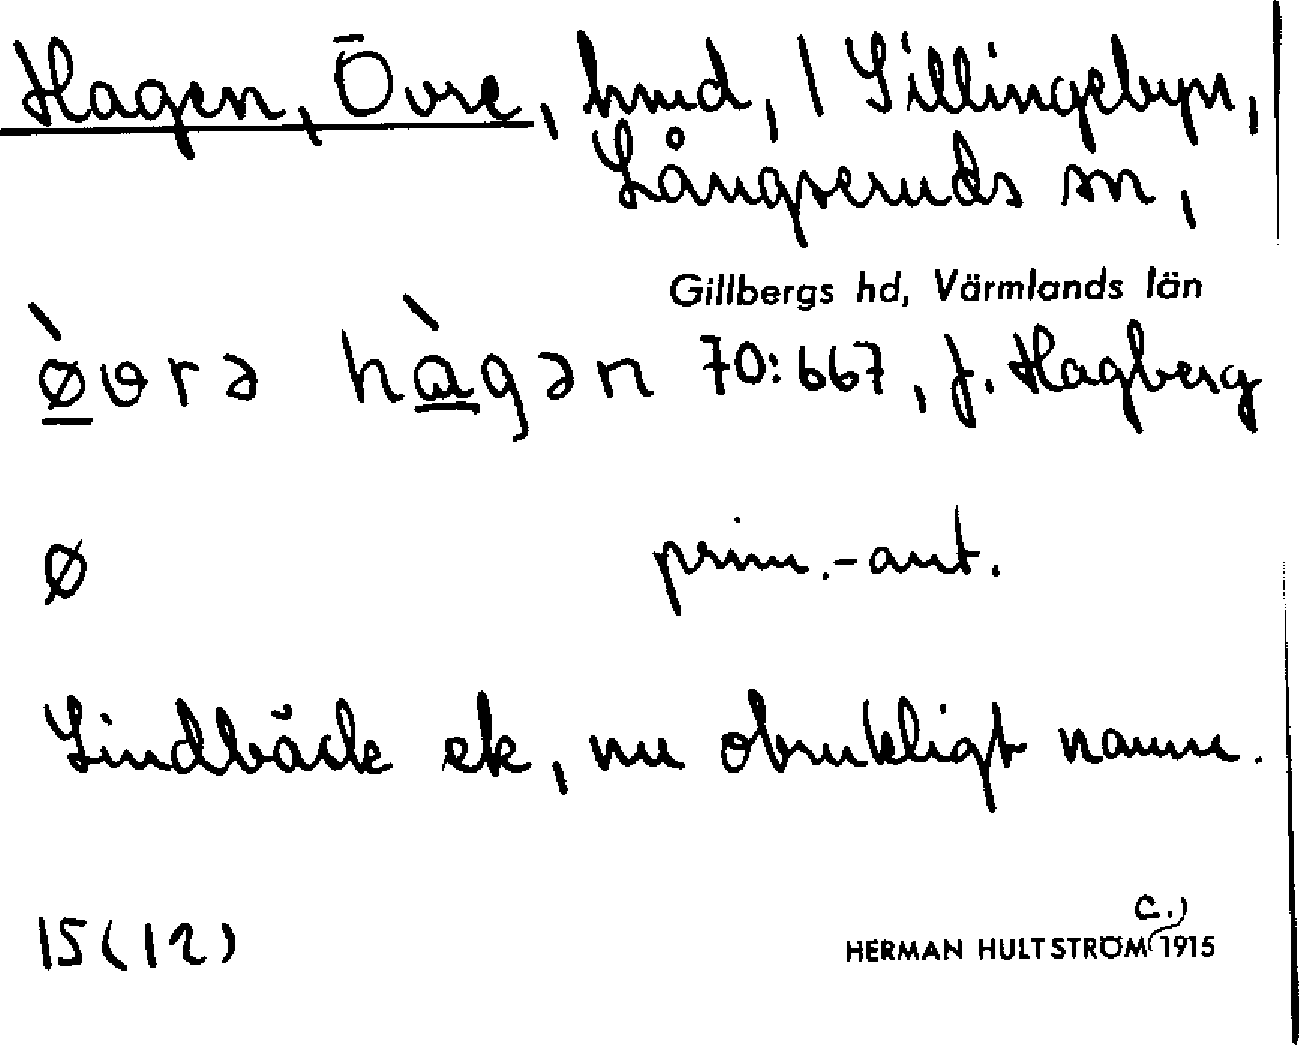 Hagen, Övre, hmd, 1 Sillingebyn,
Långseruds sn,
Gillbergs hd, Värmlands län
ø̀vrə hàgən 70:667, J. Hagberg
Ø prim.-ant.
Lindbäck ek, nu obrukligt namn.
15(12) c.)
HERMAN HULTSTRÖM 1915